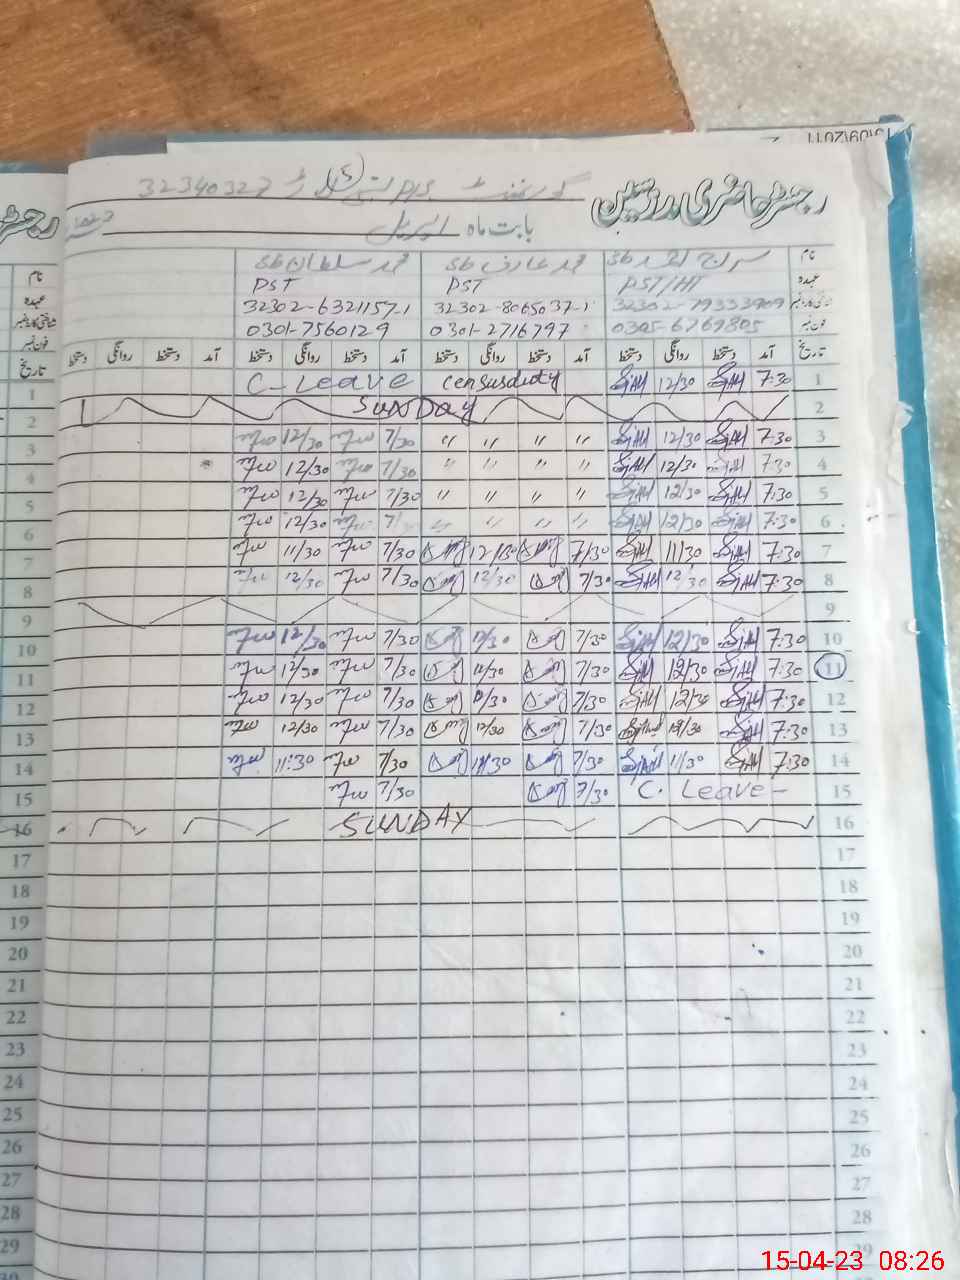 رجسٹر حاضری مدرسین
گورنمنٹ P/S بستی 32340327
بابت ماہ اپریل 2023
نام سراج احمد sb محمد عارف sb محمد سلطان sb
عہدہ PST/HT PST PST
شناختی کارڈ نمبر 32302-79333909 32302-8065037-1 32302-6321157-1
فون نمبر 0305-6769805 0301-2716797 0301-7560129
تاریخ آمد دستخط روانگی دستخط آمد دستخط روانگی دستخط آمد دستخط روانگی دستخط آمد دستخط روانگی دستخط
1 7:30 12/30 census duty C-Leave
2 SUNDAY
3 7:30 12/30 " " " " 7/30 12/30
4 7:30 12/30 " " " " 7/30 12/30
5 7:30 12/30 " " " " 7/30 12/30
6 7:30 12/30 " " " " 7/30 12/30
7 7:30 11/30 7/30 12/30 7/30 11/30
8 7:30 12/30 7/30 12/30 7/30 12/30
9
10 7:30 12/30 7/30 12/30 7/30 12/30
11 7:30 12/30 7/30 12/30 7/30 12/30
12 7:30 12/30 7/30 12/30 7/30 12/30
13 7:30 12/30 7/30 12/30 7/30 12/30
14 7:30 11/30 7/30 11/30 7/30 11:30
15 C. Leave- 7/30 7/30
16 SUNDAY
17
18
19
20
21
22
23
24
25
26
27
28
29
15-04-23 08:26